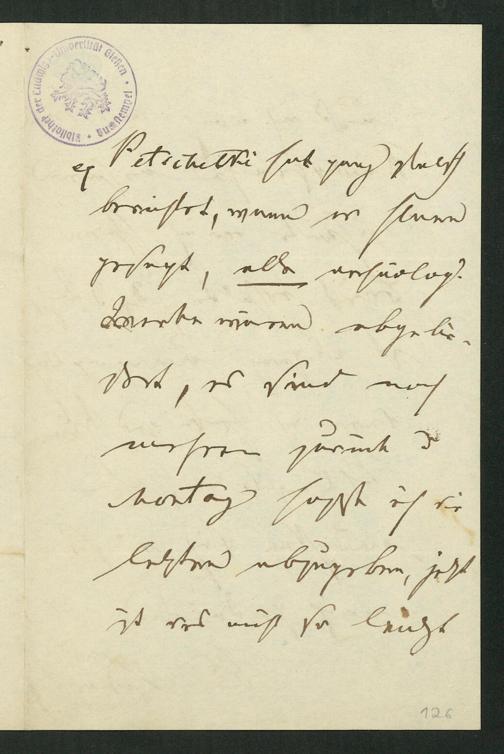 Bibliothek der Ludwigs-Universität Gießen
Petschetki hat ganz falsch
berichtet, wenn er Ihnen
gesagt, alle archäolog.
Werke wären abgelie-
fert, es sind noch
mehrere zurück u
Montag hoffe ich die
letzten abzugeben, jetzt
ist es nicht so leicht
126